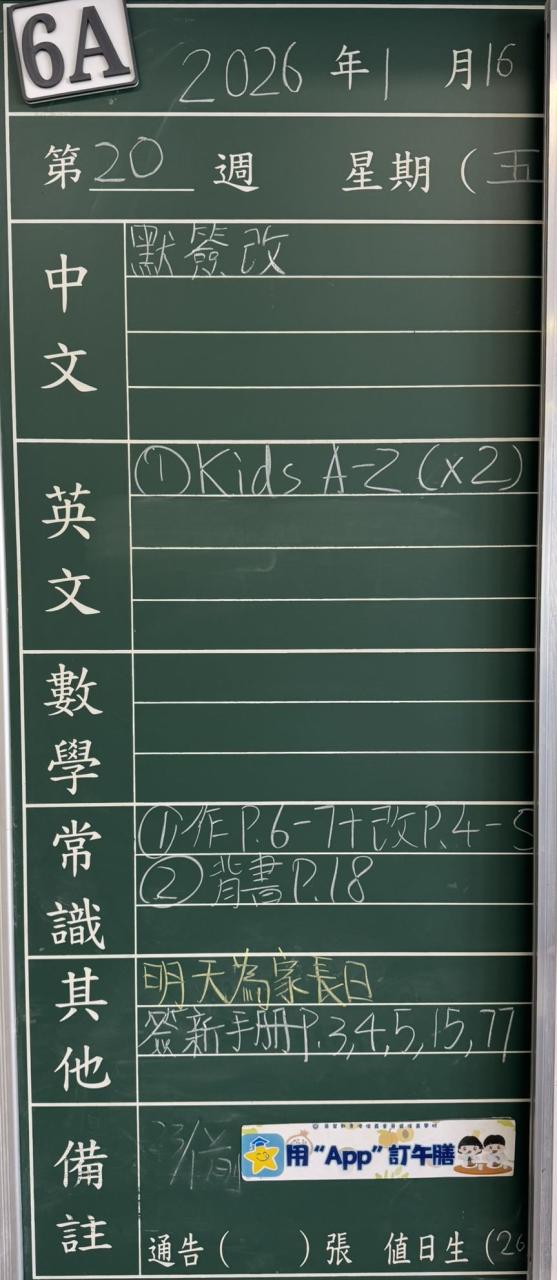 6A
2026 年 1 月 16
第 20 週 星期 ( 五
中文
默簽改
英文
① Kids A-Z (x2)
數學
常識
① 作 P.6-7 + 改 P.4-5
② 背書 P.18
其他
明天為家長日
簽新手冊 P.3,4,5,15,77
備註
用“App”訂午膳
通告 ( ) 張 值日生 (26